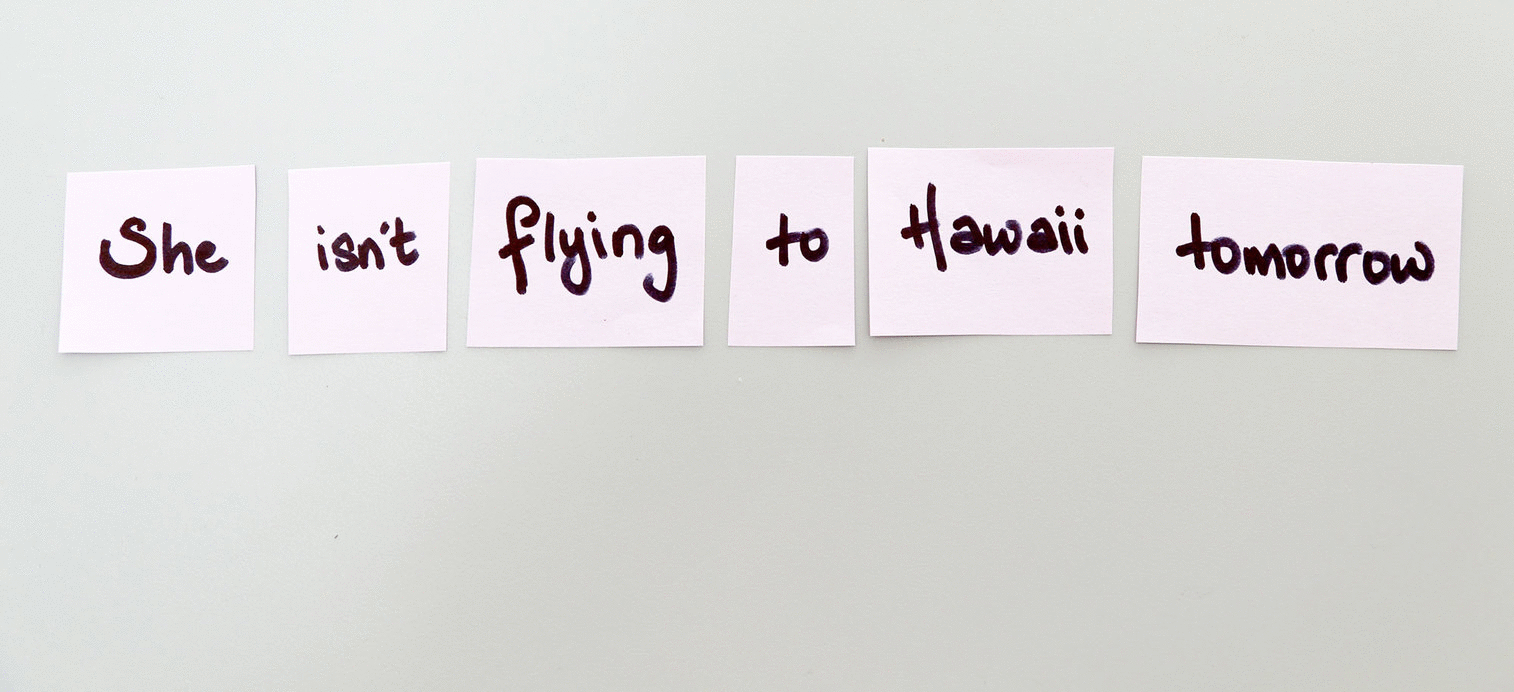 She isn't flying to Hawaii tomorrow